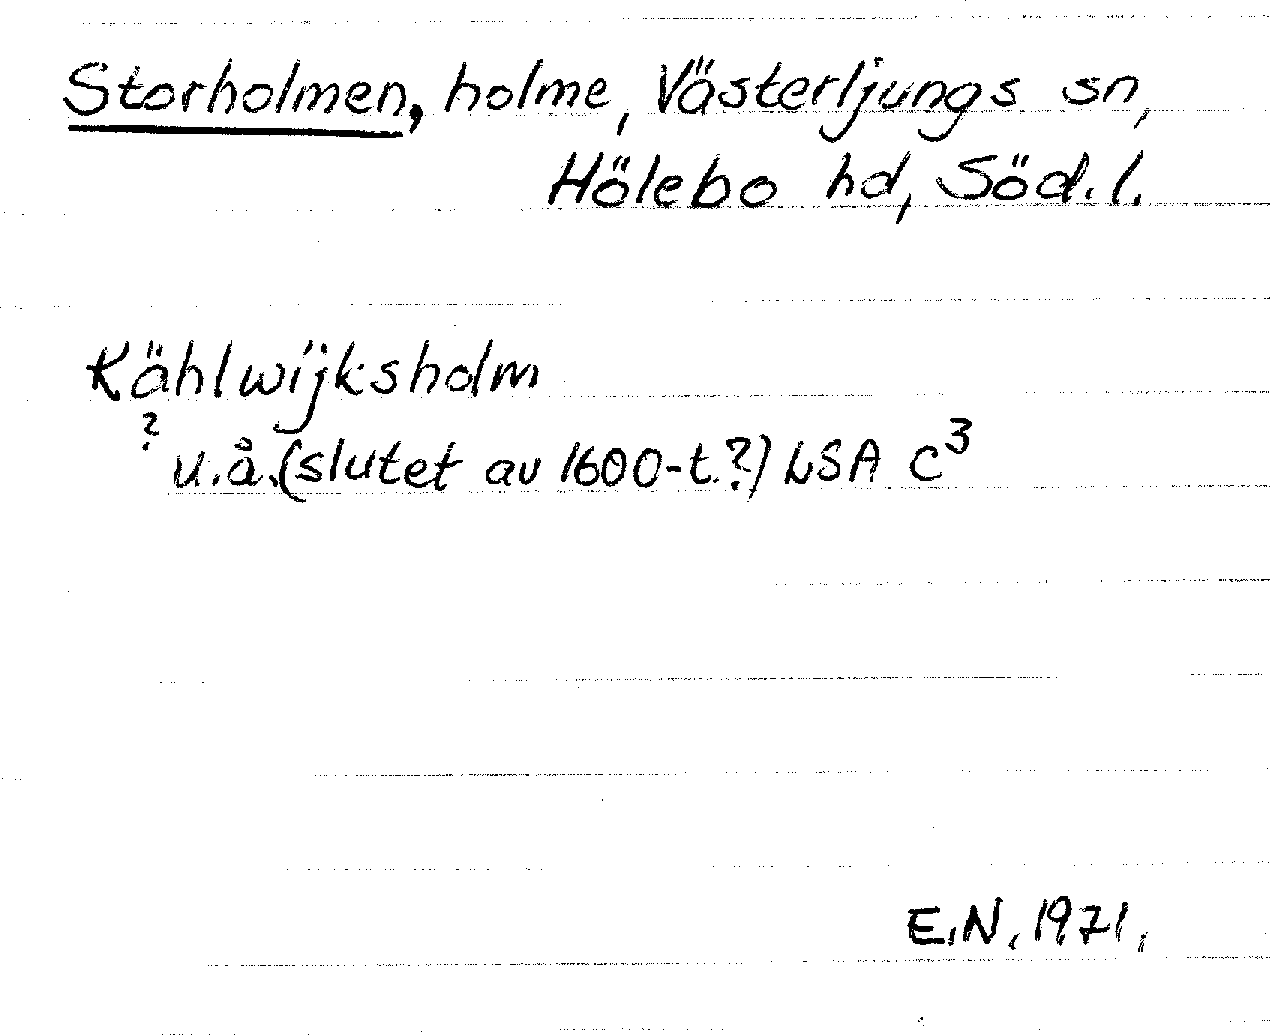 Storholmen, holme, Västerljungs sn,
Hölebo hd, Söd.l.
Kählwijksholm
?
u.å.(slutet av 1600-t.?) LSA C³
E.N. 1971.